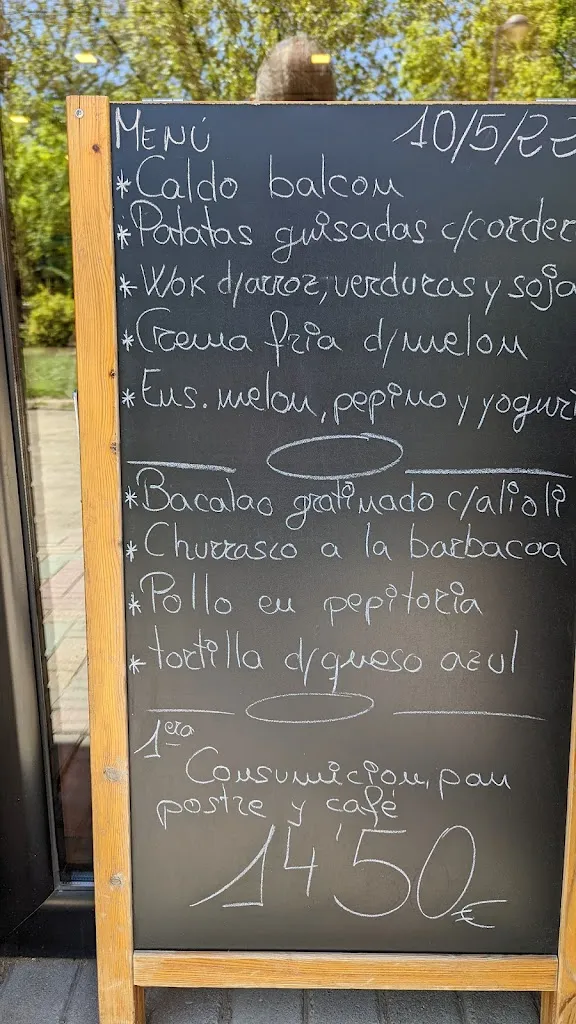 MENÚ 10/5/22
* Caldo balcon
* Patatas guisadas c/corder
* Wok d/arroz, verduras y soja
* Crema fria d/melon
* Ens. melon, pepino y yogurt
* Bacalao gratinado c/alioli
* Churrasco a la barbacoa
* Pollo en pepitoria
* tortilla d/queso azul
1era
Consumición, pan
postre y café
14'50€